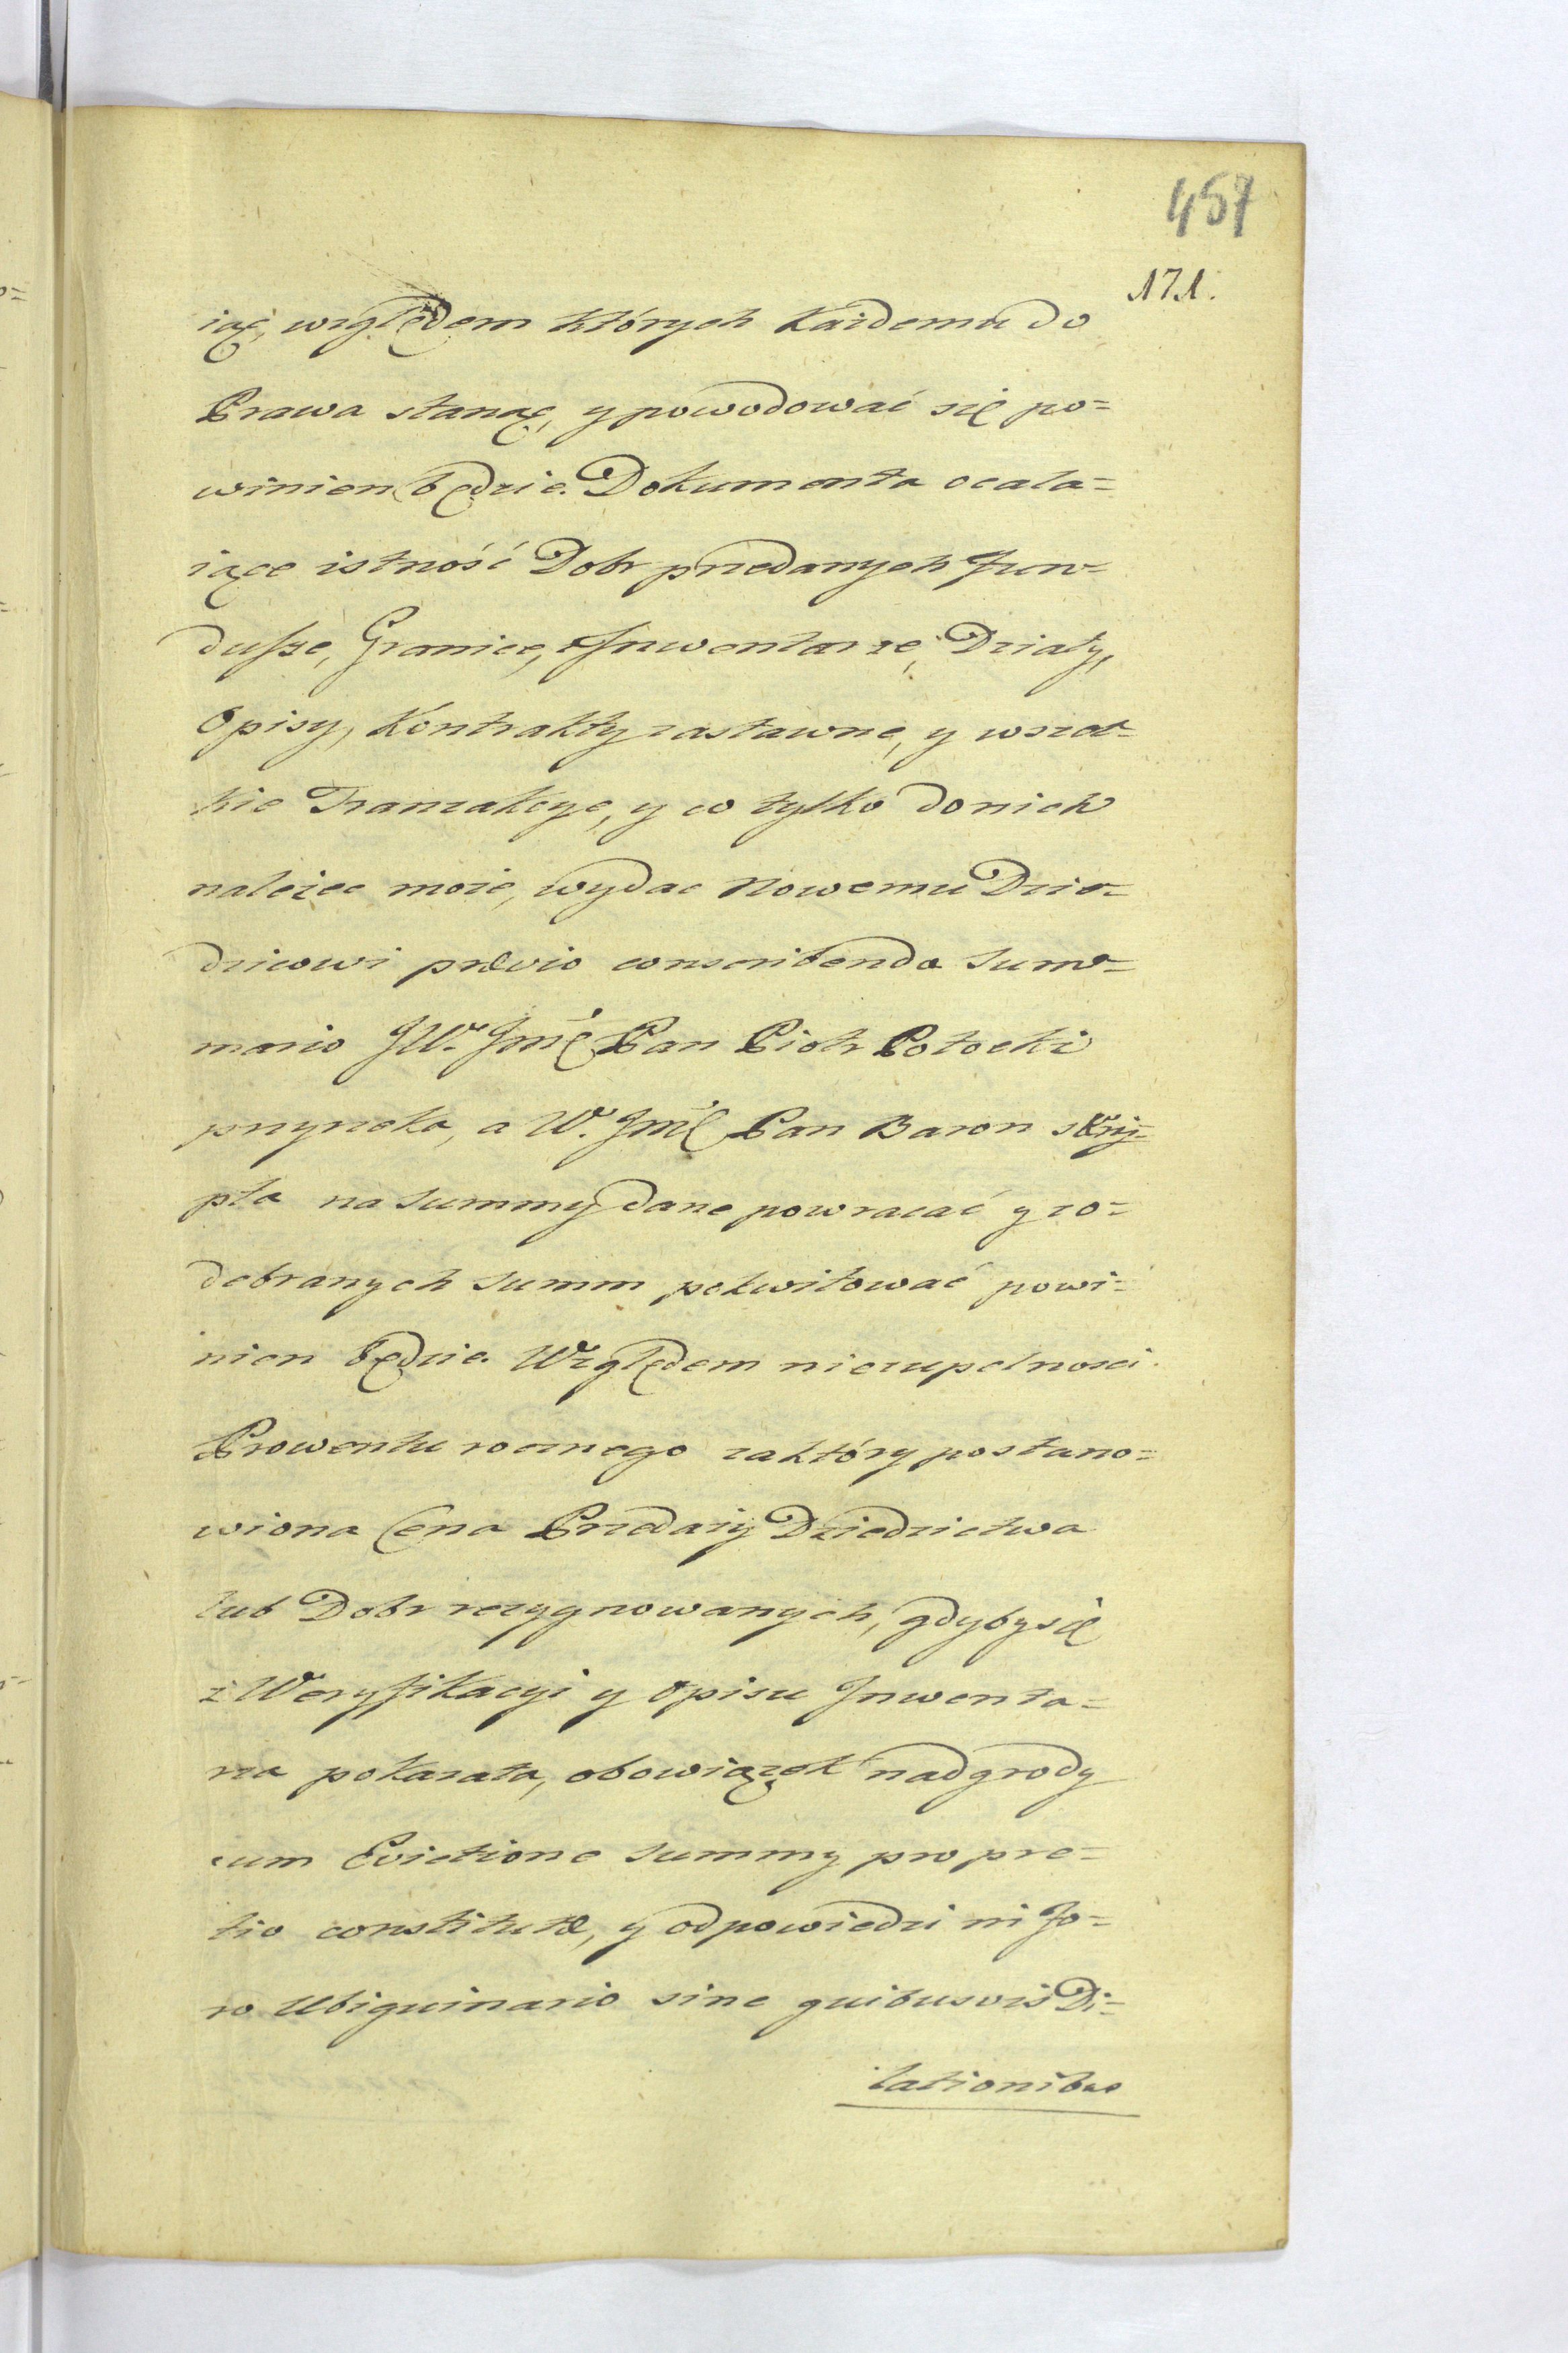 457
171.
iąć, względem których Każdemu do
Prawa stanąć, y powodować się po=
winien będzie. Dokumenta ocala=
iące istność Dobr przedanych Fun=
dusze, Granice, Inwentarze, Działy,
Opisy, Kontrakty zastawne, y wszel=
kie Tranzakcye, y co tylko do nich
należec może, wydac Nowemu Dzie=
dzicowi prævio conscribenda Sum=
mario JW. Jmć Pan Piotr Potocki
przyrzeka, a W. Jmć Pan Baron skry=
pta na Summy dane powracać y zo=
debranych summ pokwitować powi=
nien będzie. Względem niezupelnosci
Prowentu rocznego zaktóry postano=
wiona Cena Przedaży Dziedzictwa
lub Dobr rezygnowanych, gdyby się
z Weryfikacyi y Opisu Inwenta=
rza pokazała, obowiązek nadgrody
cum Evictione Summy pro pre=
tio constitutæ, y odpowiedzi in Fo=
ro Ubiquinario sine quibusvis Di=
lationibus